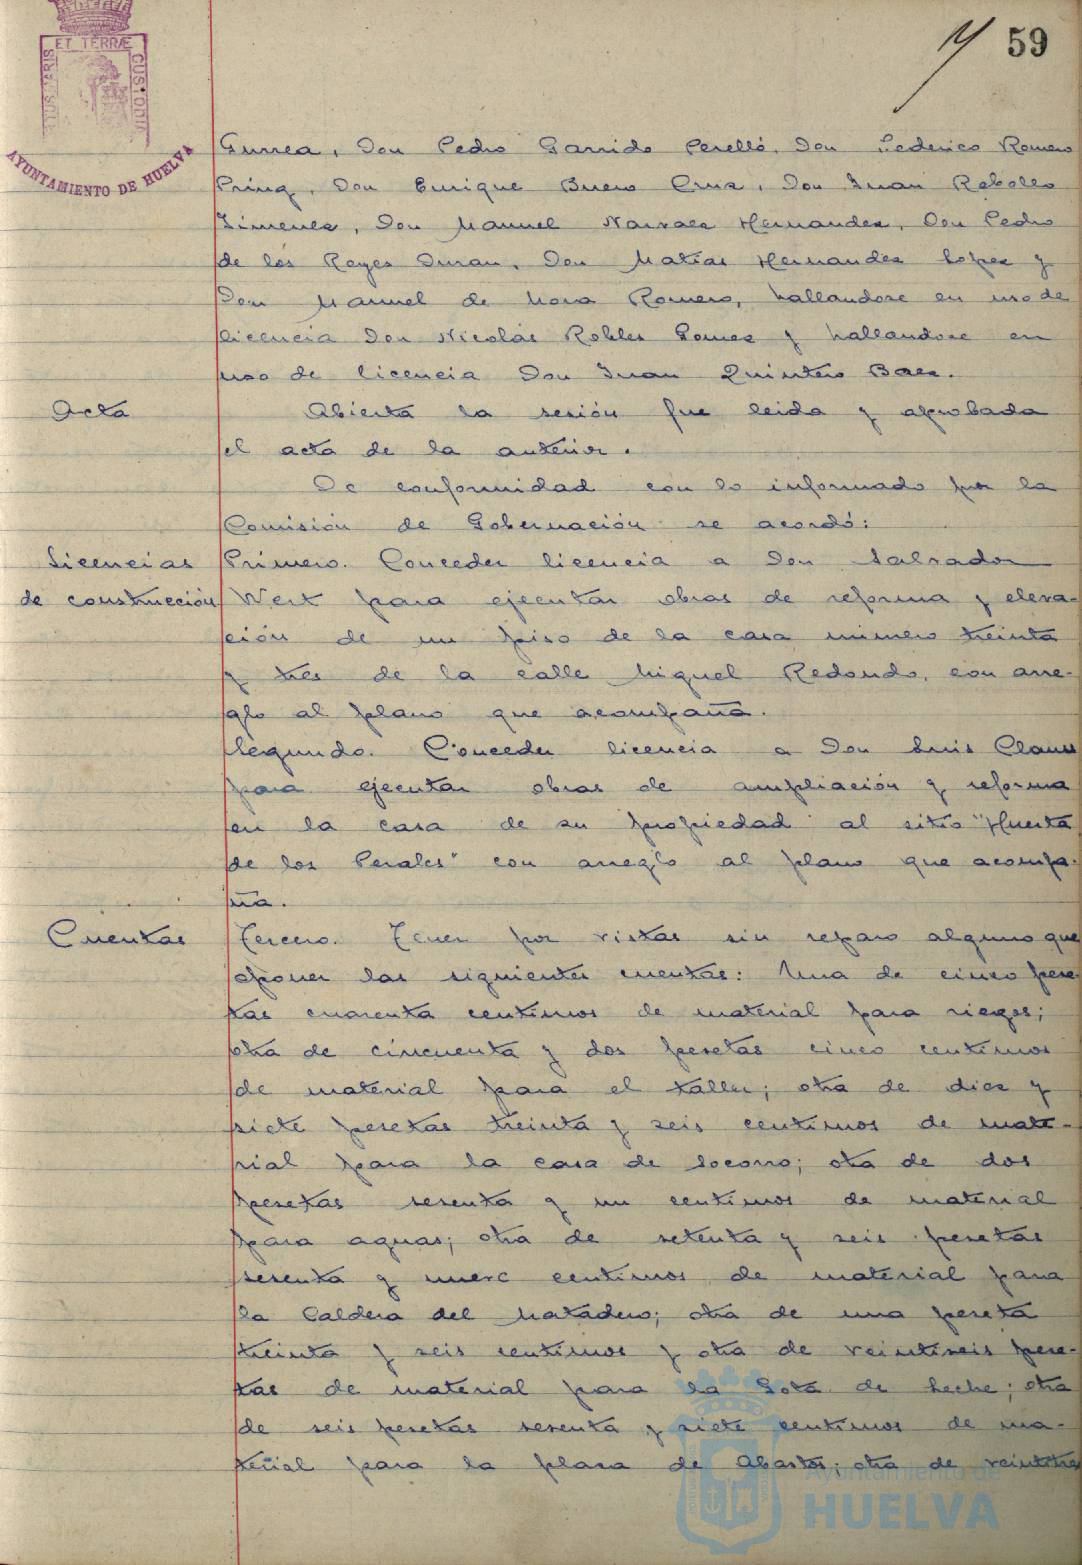 59
ET TERRÆ
CUSTODIA
AYUNTAMIENTO DE HUELVA
Gurrea, Don Pedro Garrido Perelló, Don Federico Romero
Pring, Don Enrique Bueno Cruz, Don Juan Rebollo
Jimenez, Don Manuel Narvaez Hernandez, Don Pedro
de los Reyes Duran, Don Matias Hernandez Lopez y
Don Manuel de Mora Romero, hallandose en uso de
licencia Don Nicolás Robles Gomez y hallandose en
uso de licencia Don Juan Quintero Baez.
Acta
Abierta la sesión fue leida y aprobada
el acta de la anterior.
De conformidad con lo informado por la
Comisión de Gobernación se acordó:
Licencias
de construcción
Primero. Conceder licencia a Don Salvador
Wert para ejecutar obras de reforma y eleva-
ción de un piso de la casa número treinta
y tres de la calle Miguel Redondo, con arre-
glo al plano que acompaña.
Segundo. Conceder licencia a Don Luis Clauss
para ejecutar obras de ampliación y reforma
en la casa de su propiedad al sitio "Huerta
de los Perales" con arreglo al plano que acompa-
ña.
Cuentas
Tercero. Tener por vistas sin reparo alguno que
oponer las siguientes cuentas: Una de cinco pese-
tas cuarenta centimos de material para riegos;
otra de cincuenta y dos pesetas cinco centimos
de material para el taller; otra de diez y
siete pesetas treinta y seis centimos de mate-
rial para la casa de socorro; otra de dos
pesetas sesenta y un centimos de material
para aguas; otra de setenta y seis pesetas
sesenta y nueve centimos de material para
la Caldera del Matadero; otra de una peseta
treinta y seis centimos y otra de veintiseis pese-
tas de material para la Gota de Leche; otra
de seis pesetas sesenta y siete centimos de ma-
terial para la plaza de Abastos; otra de veintitres
Ayuntamiento de
HUELVA